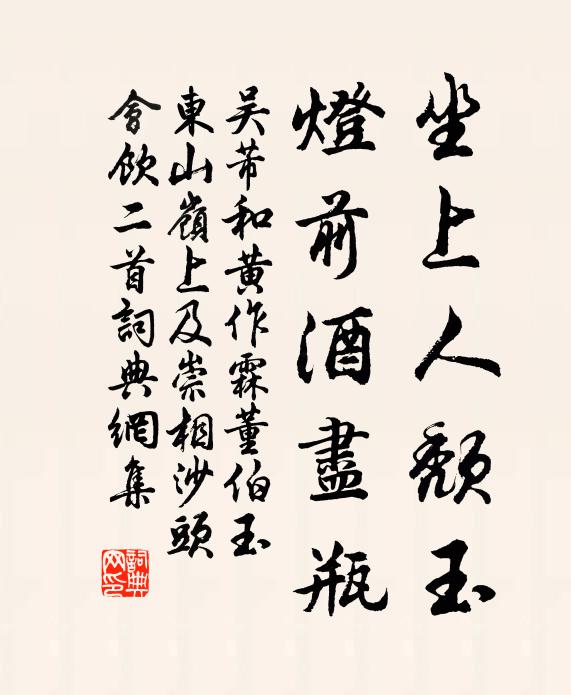 坐上人頹玉
燈前酒盡瓶
吳芾和黃作霖董伯玉
東山嶺上及崇相沙頭
會飲二首詞典網集
詞典網印